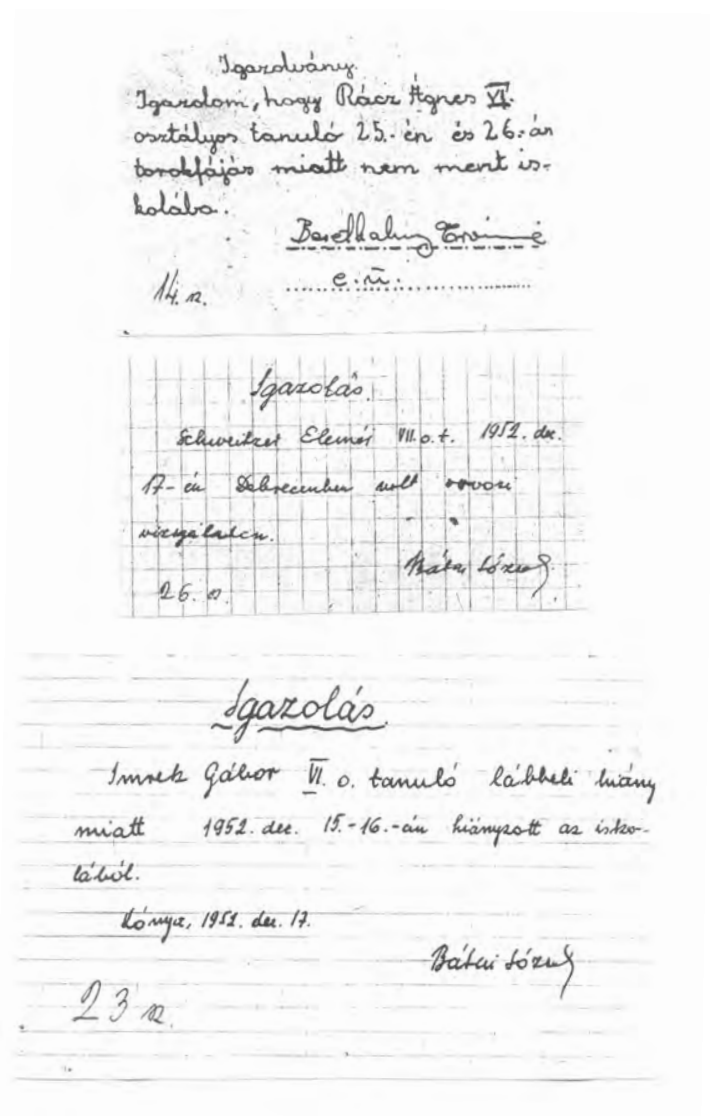 Igazolvány.
Igazolom, hogy Rácz Ágnes VI.
osztályos tanuló 25.-én és 26.-án
torokfájás miatt nem ment is-
kolába.
e. ü.
14.
Igazolás
Schweitzer Elemér VII. o. t. 1952. dec.
17-én Debrecenben volt orvosi
vizsgálaton.
26.
Igazolás.
Imrek Gábor VI. o. tanuló lábbeli hiány
miatt 1952. dec. 15.-16.-án hiányzott az isko-
lából.
Kónya, 1952. dec. 17.
23